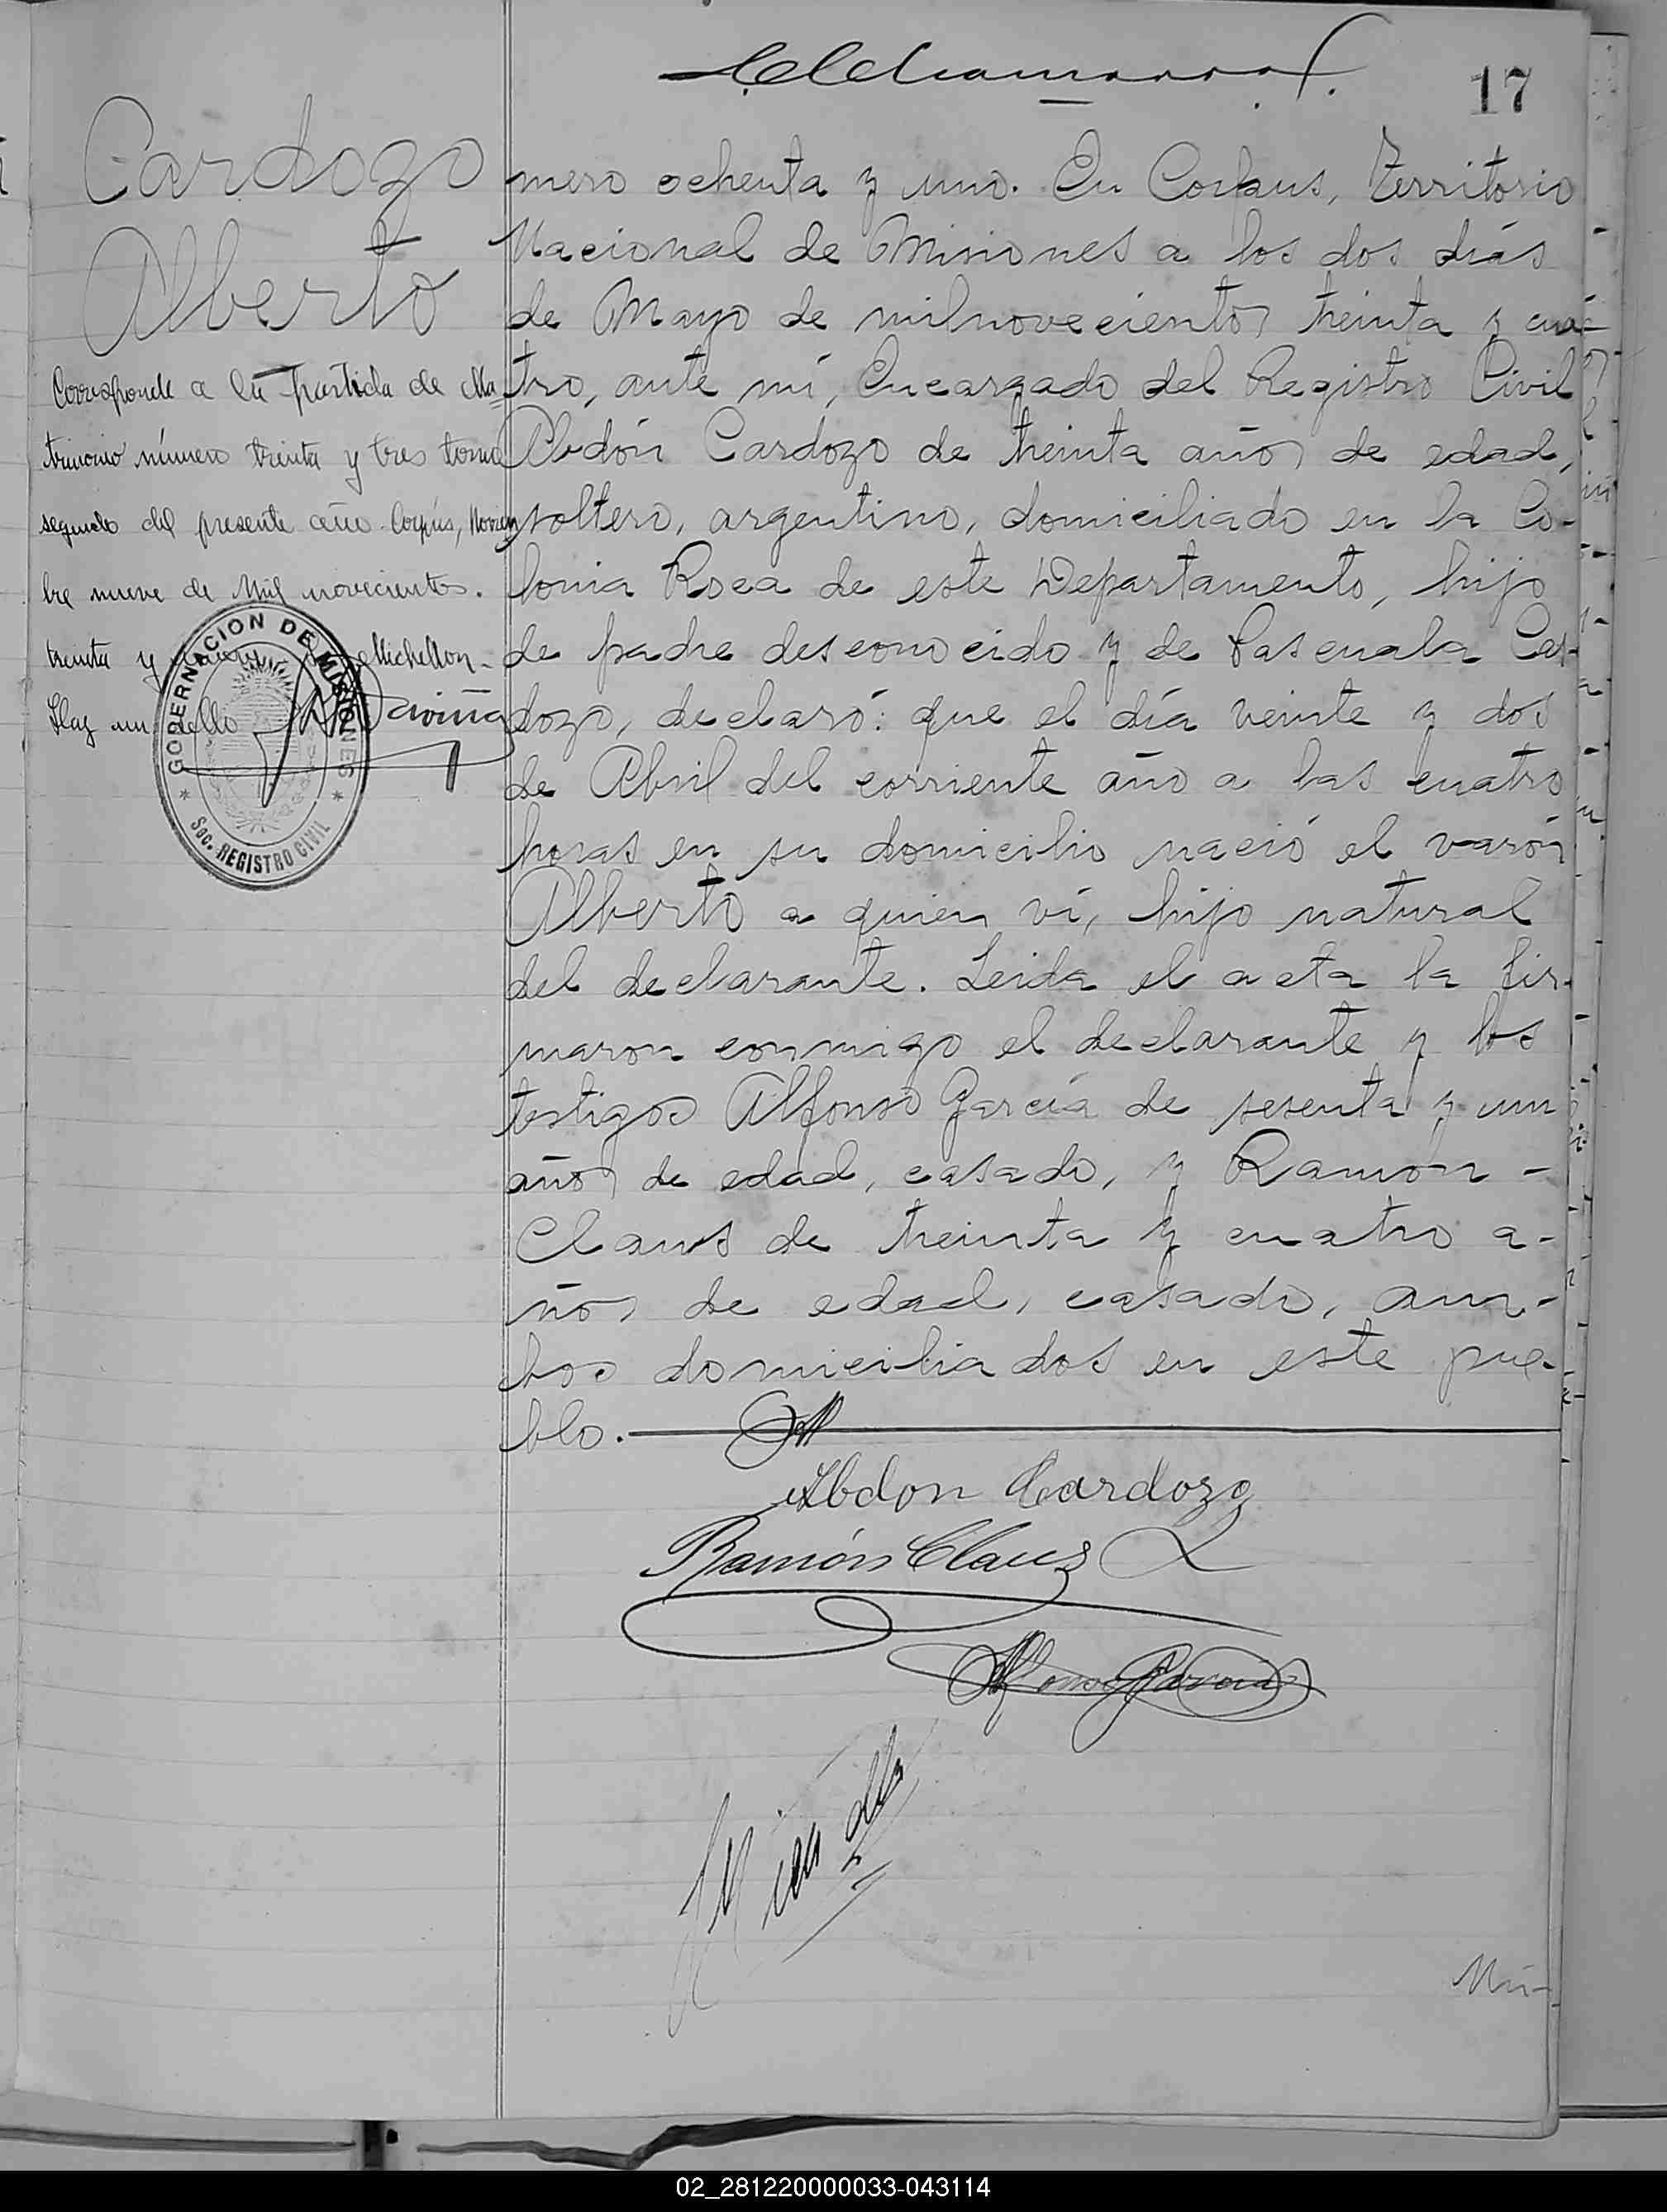 17
Cardozo
Alberto
Corresponde a la partida de Ma-
trimonio número treinta y tres tomo
segundo del presente año Corpus, Noviem
bre nueve de Mil novecientos.
treinta y
Hay un sello
GOBERNACION DE MISIONES
Soc. REGISTRO CIVIL
mero ochenta y uno. En Corpus, Territorio
Nacional de Misiones a los dos días
de Mayo de milnovecientos treinta y cua-
tro, ante mí, Encargado del Registro Civil
Abdón Cardozo de treinta años de edad,
soltero, argentino, domiciliado en la Co-
lonia Roca de este Departamento, hijo
de padre desconocido y de Pascuala Car-
dozo, declaró: que el día veinte y dos
de Abril del corriente año a las cuatro
horas en su domicilio nació el varón
Alberto a quien ví, hijo natural
del declarante. Leida el acta la fir-
maron conmigo el declarante y los
testigos Alfonso García de sesenta y un
años de edad, casado, y Ramón -
Claus de treinta y cuatro a-
ños de edad, casado, am-
bos domiciliados en este pue-
blo.
Abdon Cardozo
Ramón Claus
Alfonso Garcia
Nú-
02_281220000033-043114